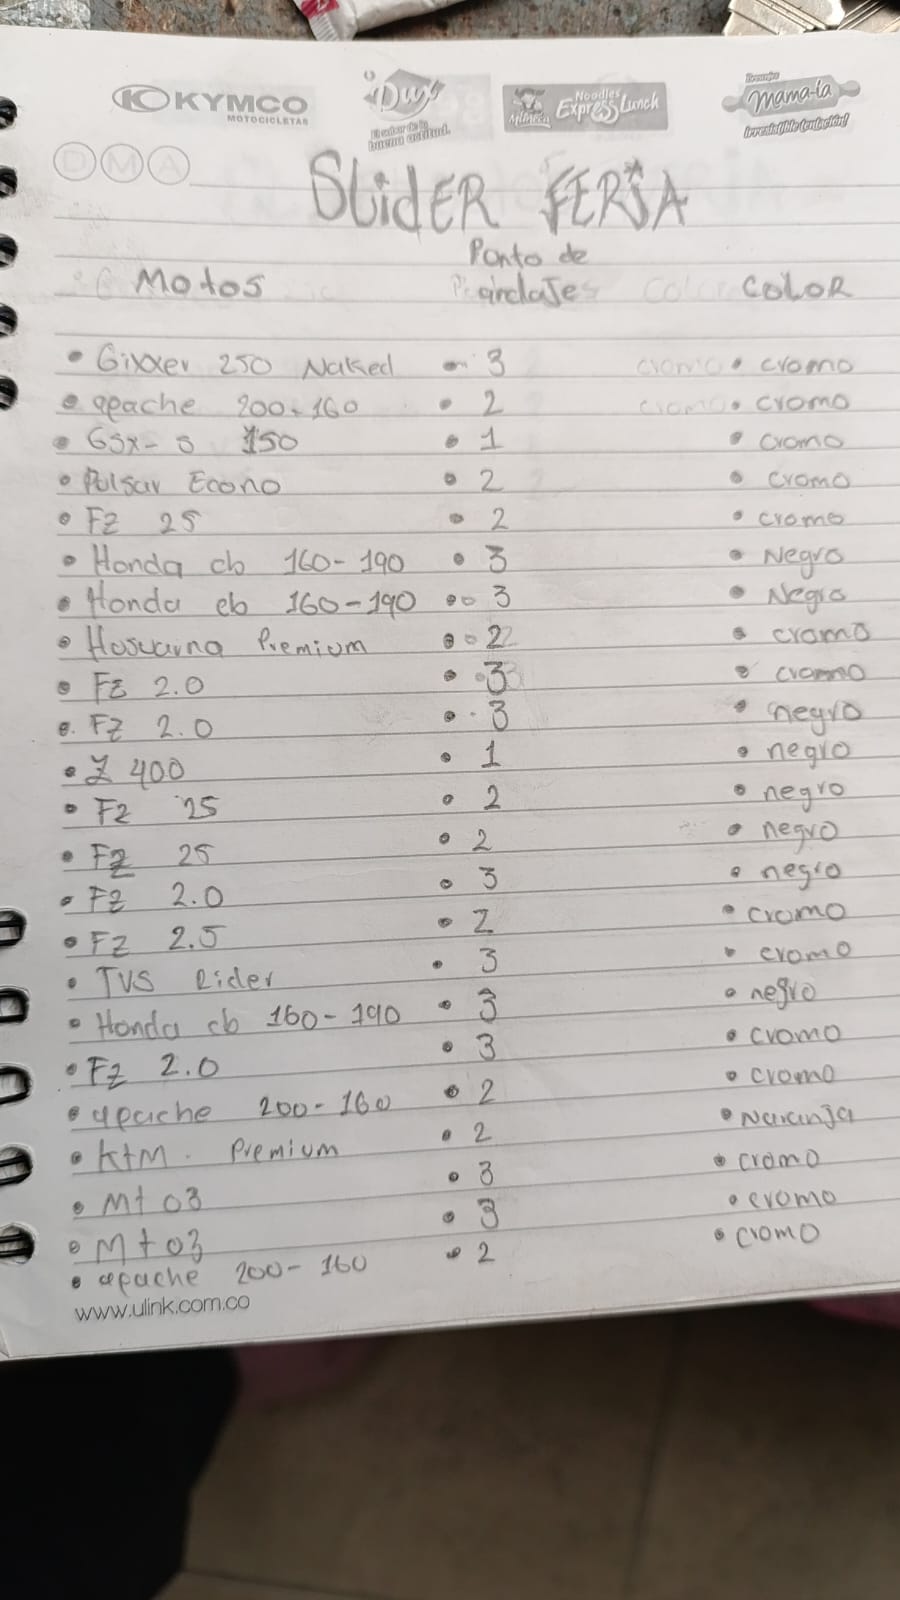 KYMCO
MOTOCICLETAS
Duys
El sabor de la buena actitud.
Noodles
Express Lunch
Brownies
Mama-ia
irresistible tentación!
D M A
SLidER FERIA
Motos Ponto de anclaJes COLOR
• Gixxer 250 Naked - 3 • cromo
• apache 200-160 • 2 • cromo
• GSX-S 150 • 1 • cromo
• Pulsar Econo • 2 • cromo
• Fz 25 • 2 • cromo
• Honda cb 160-190 • 3 • Negro
• Honda cb 160-190 • 3 • Negro
• Hosvarna Premium • 2 • cromo
• Fz 2.0 • 3 • cromo
• Fz 2.0 • 3 • negro
• Z 400 • 1 • negro
• Fz 25 • 2 • negro
• Fz 25 • 2 • negro
• Fz 2.0 • 3 • negro
• Fz 2.5 • 2 • cromo
• TVS Rider • 3 • cromo
• Honda cb 160-190 • 3 • negro
• Fz 2.0 • 3 • cromo
• apache 200-160 • 2 • cromo
• KtM. Premium • 2 • Naranja
• Mt 03 • 3 • cromo
• Mt 03 • 3 • cromo
• apache 200-160 • 2 • cromo
www.ulink.com.co